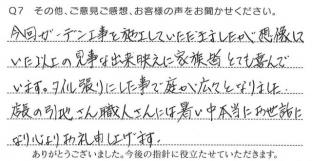 Q7 その他、ご意見ご感想、お客様の声をお聞かせください。
今回ガーデン工事を施工していただきましたが想像して
いた以上の見事な出来映えに家族皆とても喜んで
います。タイル張りにした事で庭が広くなりました。
店長の引地さん職人さんには暑い中本当にお世話に
なり心よりお礼申し上げます。
ありがとうございました。今後の指針に役立たせていただきます。